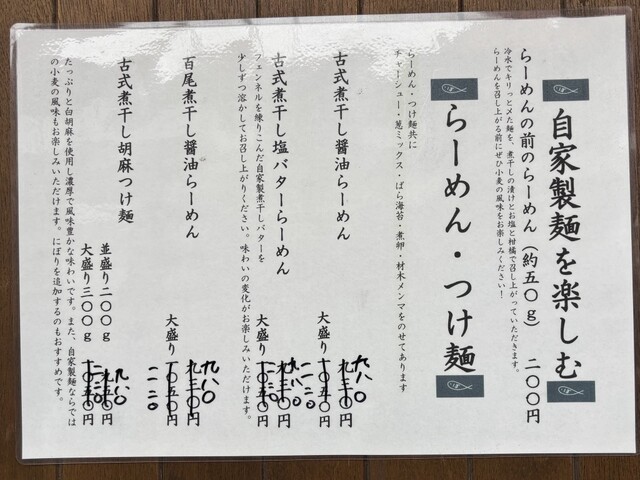 自家製麺を楽しむ
らーめんの前のらーめん（約五〇g） 二〇〇円
冷水でキリッと〆た麺を、煮干しの漬けとお塩と柑橘で召し上がっていただきます。
らーめんを召し上がる前にぜひ小麦の風味をお楽しみください！
らーめん・つけ麺
らーめん・つけ麺共に
チャーシュー・葱ミックス・ばら海苔・煮卵・材木メンマをのせてあります
古式煮干し醤油らーめん 九三〇円 九八〇
大盛り 一〇五〇円 一一二〇
古式煮干し塩バターらーめん 九三〇円 九八〇
大盛り 円
フェンネルを練りこんだ自家製煮干しバターを
少しずつ溶かしてお召し上がりください。味わいの変化がお楽しみいただけます。
百尾煮干し醤油らーめん 九三〇円 九八〇
大盛り 一〇五〇円 一一二〇
古式煮干し胡麻つけ麺
並盛り二〇〇g 円 九八〇
大盛り三〇〇g 円
たっぷりと白胡麻を使用し濃厚で風味豊かな味わいです。また、自家製麺ならでは
の小麦の風味もお楽しみいただけます。にぼりを追加するのもおすすめです。